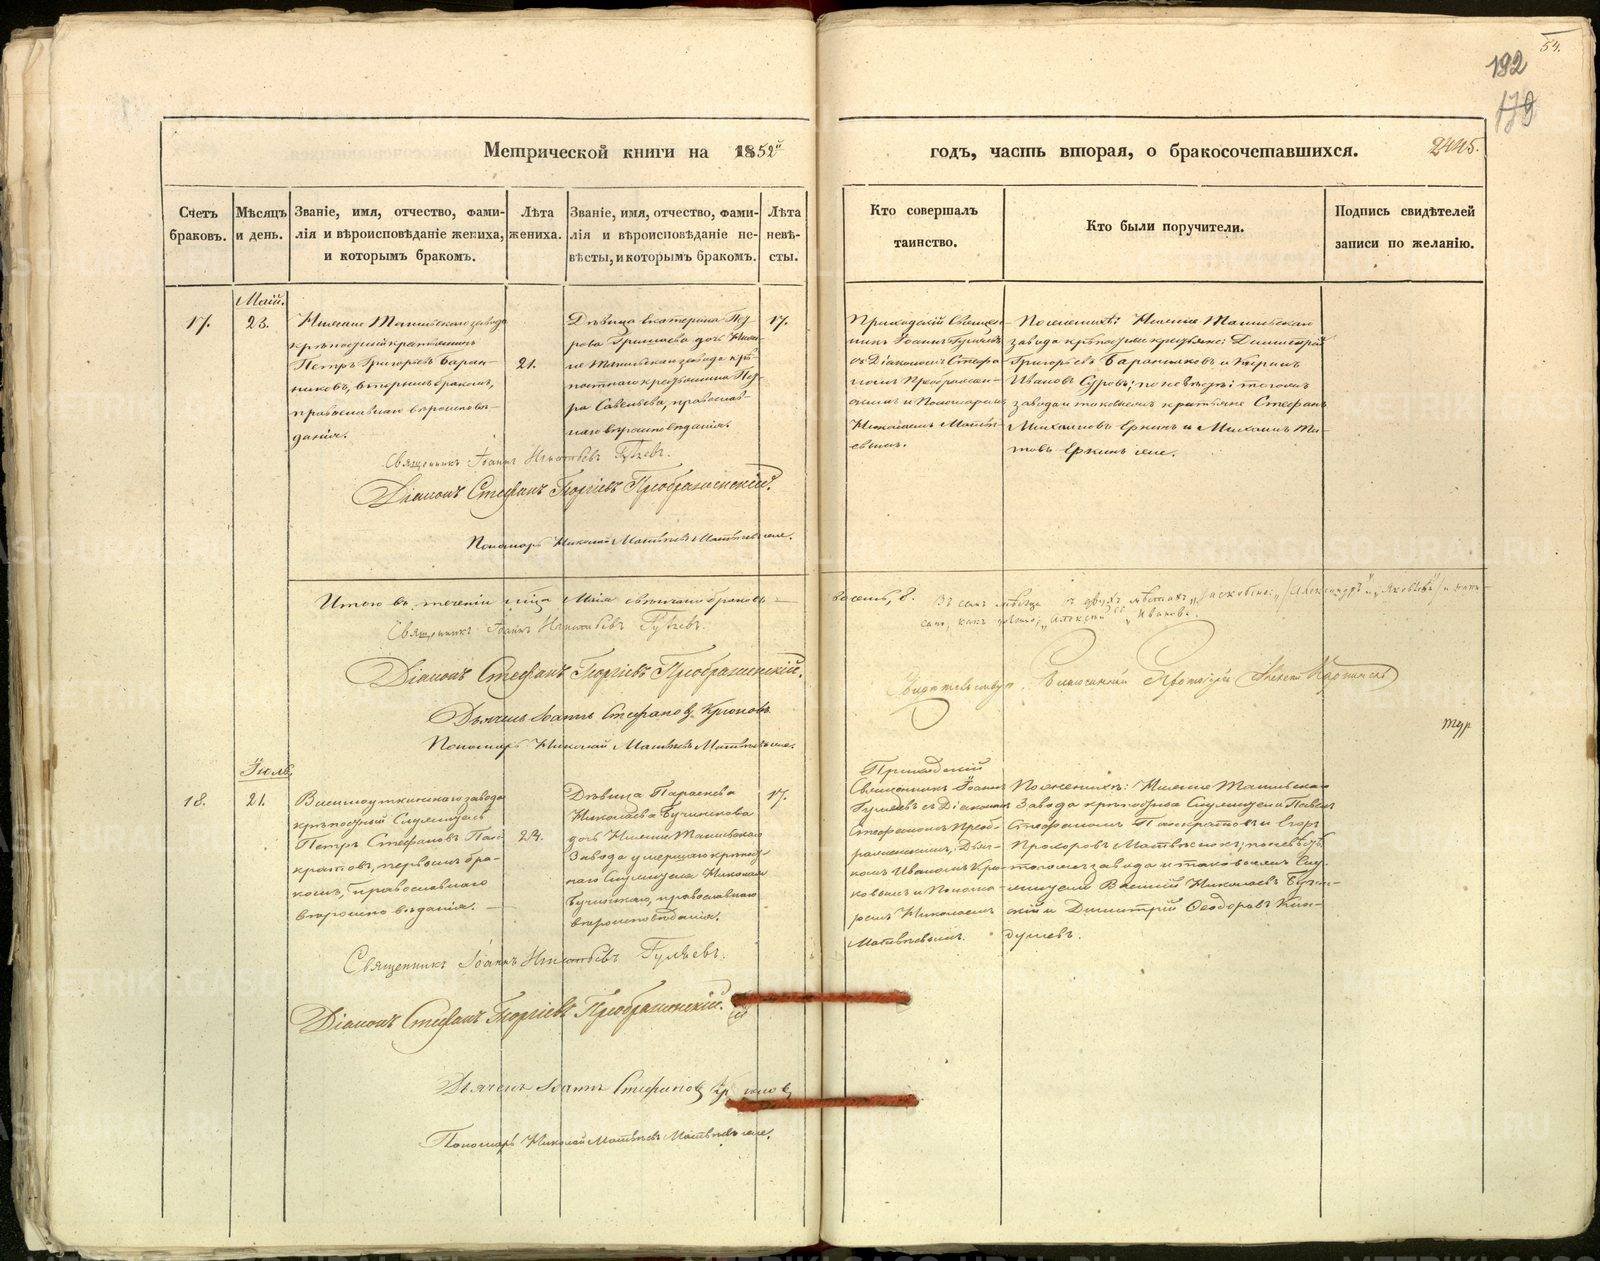 54.
192
179
Метрической книги на 1852й
годъ, часть вторая, о бракосочетавшихся.
2445.
Счетъ браковъ.
Мѣсяцъ и день.
Званіе, имя, отчество, фами-
лія и вѣроисповѣданіе жениха,
и которымъ бракомъ.
Лѣта жениха.
Званіе, имя, отчество, фами-
лія и вѣроисповѣданіе не-
вѣсты, и которымъ бракомъ.
Лѣта невѣ-
сты.
Кто совершалъ
таинство.
Кто были поручители.
Подпись свидѣтелей
записи по желанію.
Май.
17.
23.
Нижне Тагильскаго завода
крѣпостный крестьянинъ
Петръ Григорьевъ Баран-
никовъ, первымъ бракомъ,
православнаго вѣроисповѣ-
данія.
21.
Дѣвица Екатерина Пет-
рова дочь Ниж-
не Тагильскаго завода крѣ-
постнаго крестьянина Пет-
ра Савельева, православ-
наго вѣроисповѣданія.
17.
Приходскій Священ-
никъ Іоаннъ Гуляевъ
съ Діакономъ Стефа-
номъ Преображен-
скимъ и Пономаремъ
Николаемъ Матвѣ-
евымъ.
По женихѣ: Нижне Тагильскаго
завода крѣпостные крестьяне: Димитрій
Григорьевъ Баранниковъ и
Ивановъ Суровъ; по невѣстѣ: тогожъ
завода и таковыежъ крестьяне Стефанъ
Михайловъ Еркинъ и Михаилъ Ти-
товъ Еркинъ же.
Священникъ Іоаннъ Игнатьевъ Гуляевъ.
Діаконъ Стефанъ Георгіевъ Преображенскій.
Пономарь Николай Матвѣевъ Матвѣевъ же.
Итого въ теченіи мѣсяца Мая свѣнчано браковъ —
восемь, 8.
Священникъ Іоаннъ Игнатьевъ Гуляевъ.
Діаконъ Стефанъ Георгіевъ Преображенскій.
Дьячекъ Іоаннъ Стефановъ Крюковъ
Пономарь Николай Матвѣевъ Матвѣевъ же.
Свидетельствовалъ Благочинный Протоіерей Алексей Карпинскій
Іюль,
18.
21.
Висимоуткинскаго завода
крѣпостный Служитель
Петръ Стефановъ Пан-
кратовъ, первымъ бра-
комъ, православнаго
вѣроисповѣданія.
24.
Дѣвица Параскева
Николаева Бучинкова
дочь Нижне Тагильскаго
Завода умершаго крѣпост-
наго Служителя Николая
православнаго
вѣроисповѣданія.
17.
Приходскій
Священникъ Іоаннъ
Гуляевъ съ Діакономъ
Стефаномъ Преоб-
раженскимъ, Дьяч-
комъ Иваномъ Крю-
ковымъ и Понома-
ремъ Николаемъ
Матвѣевымъ.
По женихѣ: Нижне Тагильскаго
Завода крѣпостные Служители Павелъ
Стефановъ Панкратовъ и Егоръ
Прохоровъ по невѣстѣ:
тогожъ завода и таковыежъ Слу-
жители Василій Николаевъ
и Димитрій Феодоровъ
Священникъ Іоаннъ Игнатьевъ Гуляевъ.
Діаконъ Стефанъ Георгіевъ Преображенскій.
Дьячекъ Іоаннъ Стефановъ Крюковъ
Пономарь Николай Матвѣевъ Матвѣевъ же.